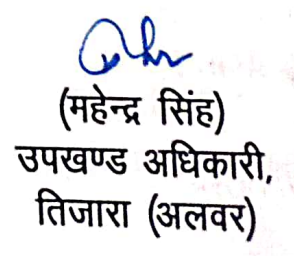 (महेन्द्र सिंह)
उपखण्ड अधिकारी,
तिजारा (अलवर)